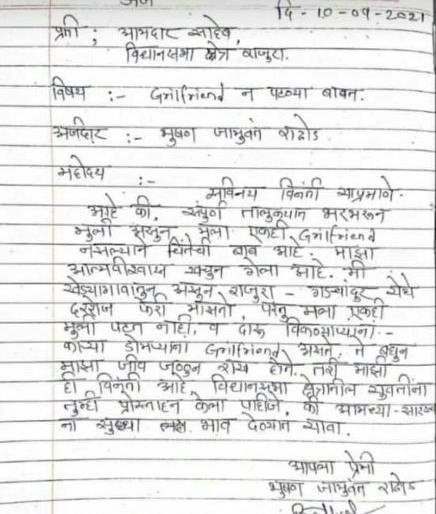 अर्ज
दि - 10-09-2021
प्रती ; आमदार साहेब,
विधानसभा क्षेत्र राजुरा.
विषय :- Grilfriend न पटण्या बाबत.
अर्जदार :- भुषण जाभुवंत राठोड
महोदय
:- सविनय विनंती याप्रमाणे.
आहे की, संपुर्ण तालुक्यात भरभरून
मुली असुन, मला एकही Grilfriend
नसल्याने चिंतेची बाब आहे. माझा
आत्मवीश्वाय खचुन गेला आहे. मी
खेड्यागावांतुन असुन राजुरा - गडचांदूर येथे
दररोज फेरी मारतो, परंतु मला एकही
मुली पटत नाही, व दारू विकणाऱ्याना -
काऱ्या डोमऱ्याना Grilfriend असते, ते बघुन
माझा जीव जळुन राख होते. तरी माझी
ही विनंती आहे, विधानसभा क्षेत्रातील युवतींना
तुम्ही प्रोस्ताहन केला पाहीजे, की आमच्या-सारख्या
ना सुध्धा भाव देण्यात यावा.
आपला प्रेमी
भुषण जाभुवंत राठोड